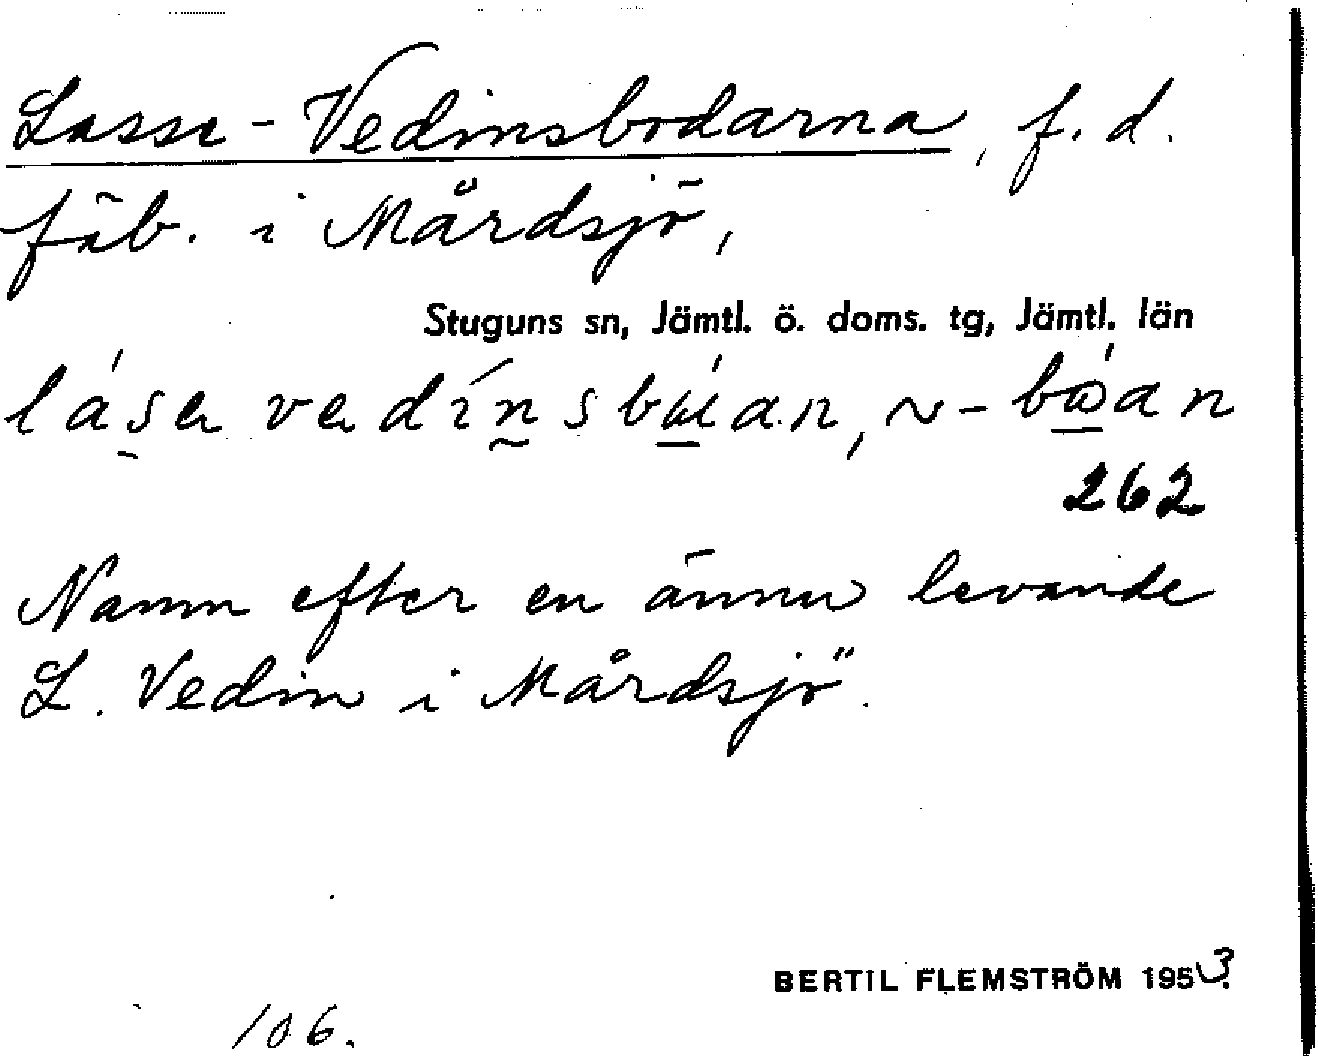 Lasse-Vedinsbodarna, f.d.
fäb. i Mårdsjö,
Stuguns sn, Jämtl. ö. doms. tg, Jämtl. län
262
Namn efter en ännu levande
L. Vedin i Mårdsjö.
BERTIL FLEMSTRÖM 1953.
106.